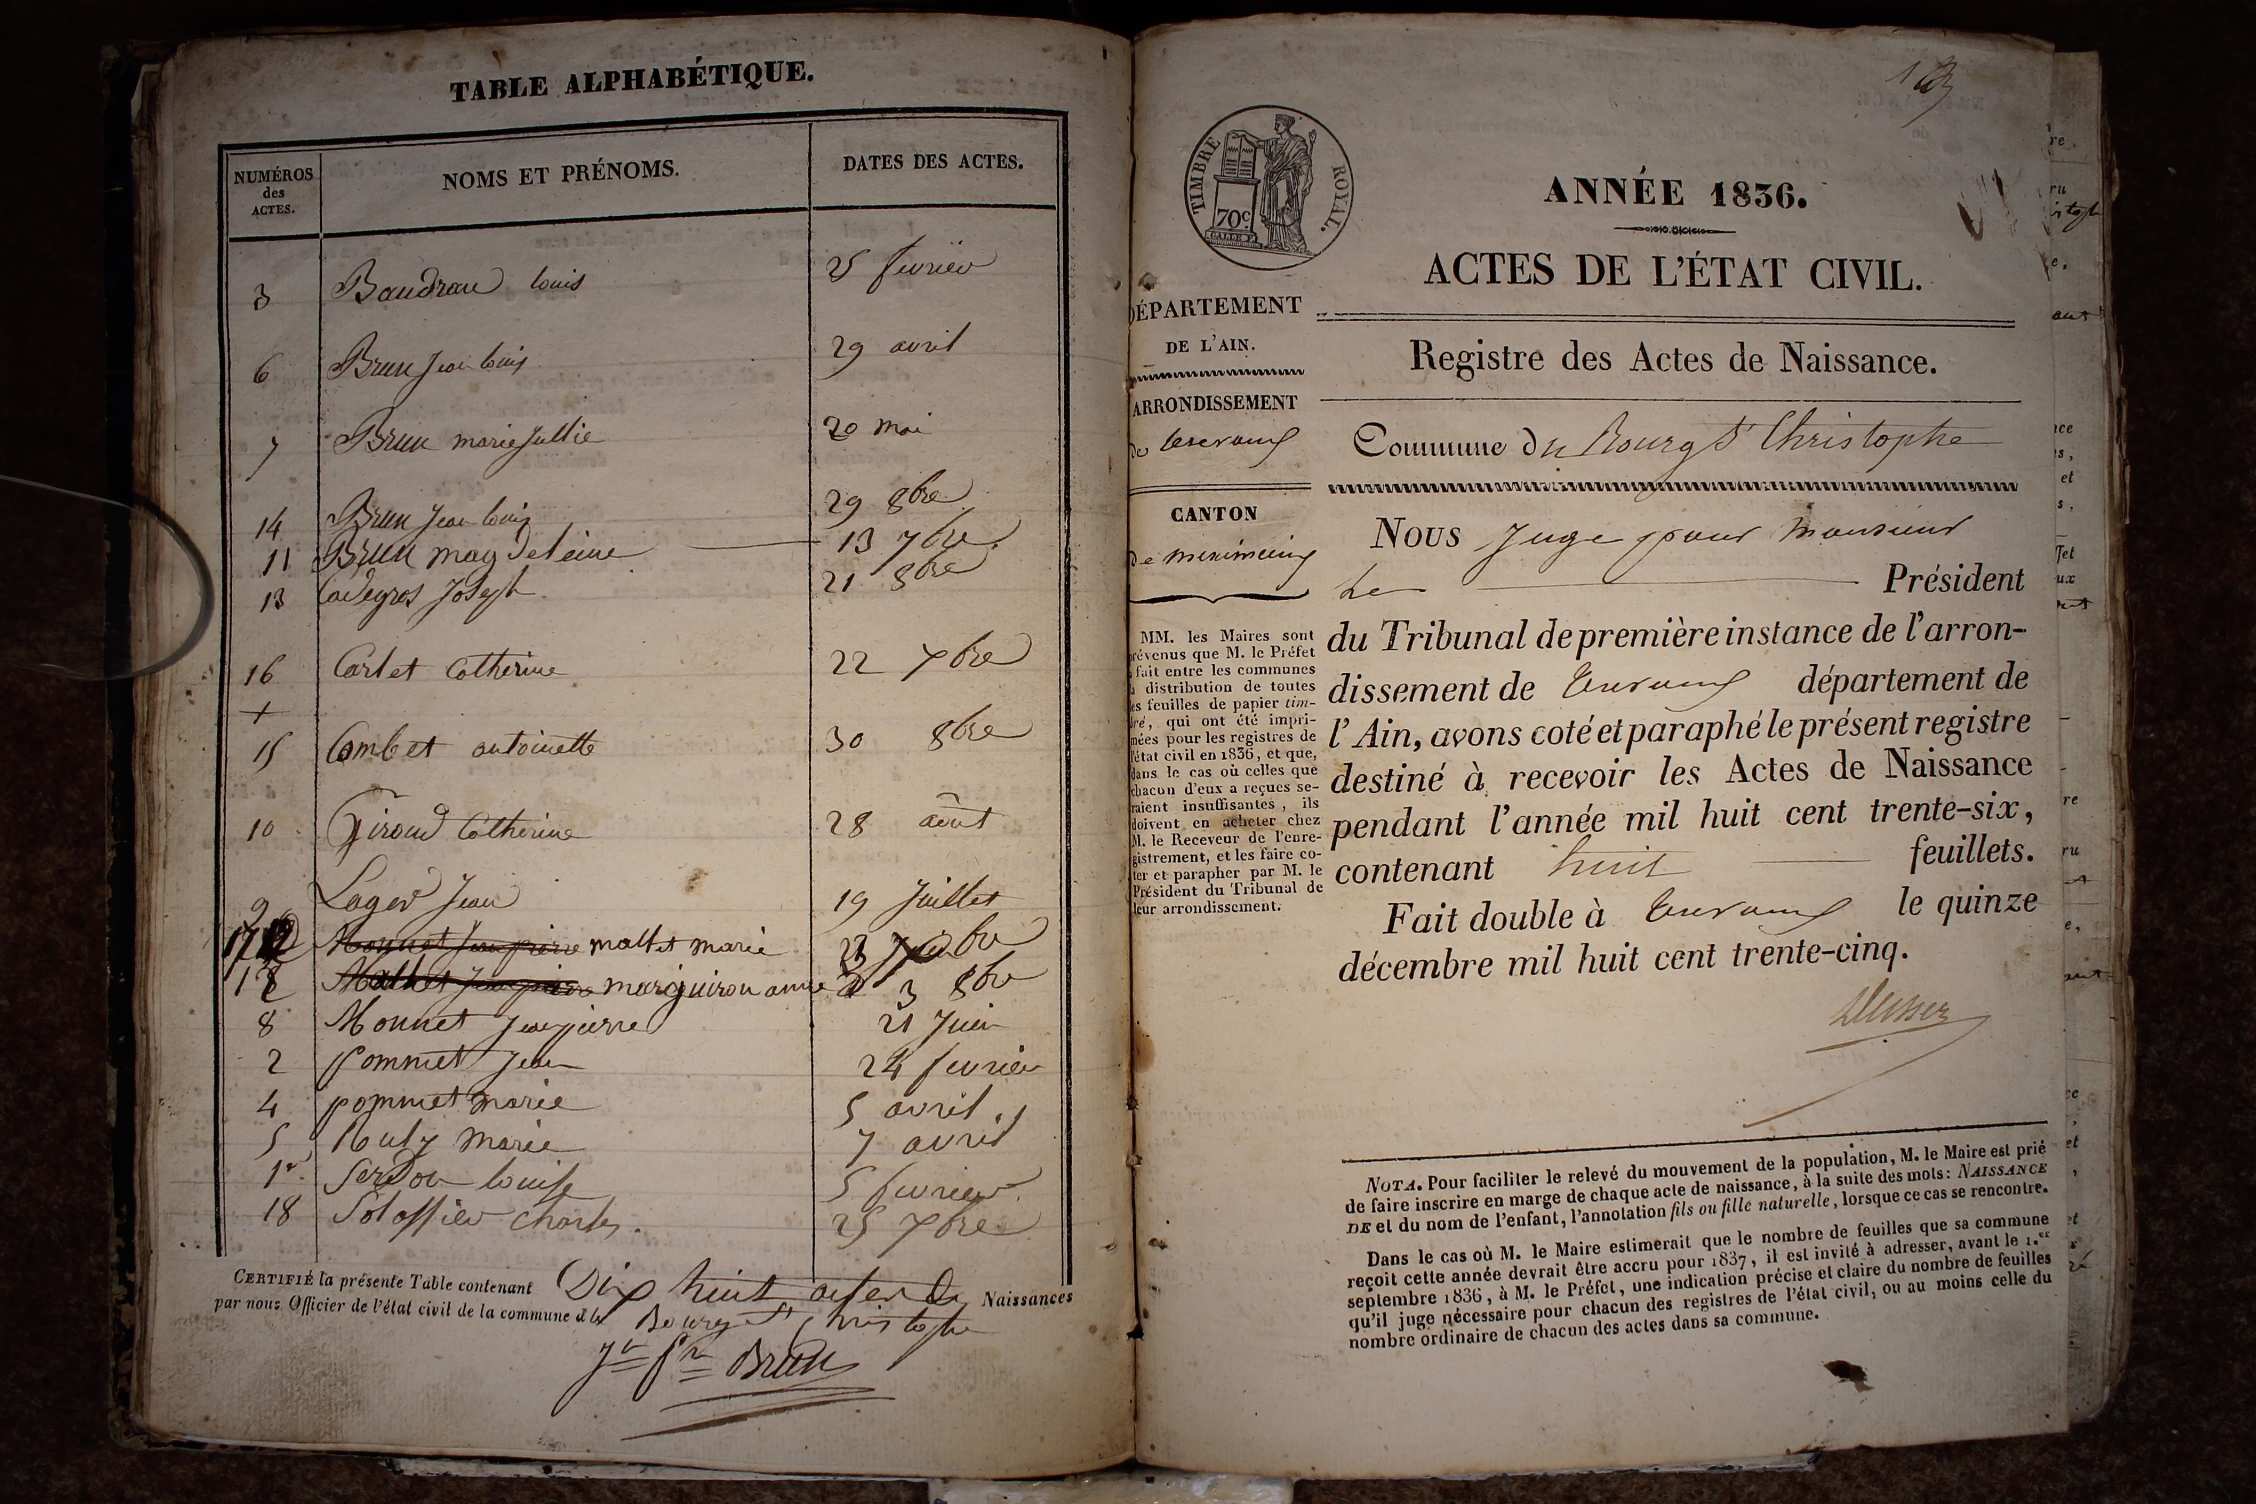 TABLE ALPHABÉTIQUE.
NUMÉROS des ACTES. NOMS ET PRÉNOMS. DATES DES ACTES.
3 Baudrau louis 25 fevrier
6 Brun Jean louis 29 avril
7 Brun marie Jullie 20 mai
14 Brun Jean louis 29 8bre
11 Brun magdeleine 13 7bre
13 Cadegros Joseph 21 8bre
16 Carlet Catherine 22 xbre
+
15 Combet antoinette 30 8bre
10 Giroud Catherine 28 août
9 Lager Jean 19 Juillet
17 Monnet Jean pierre mallet marie 23 xbre
12 Mallet Jean pierre marguiron anne 3 8bre
8 Monnet Jean pierre 21 Juin
2 pommet Jean 24 fevrier
4 pommet marie 5 avril
5 Ruty marie 7 avril
1er Serdon louise 5 fevrier
18 Solossier Charles. 25 xbre
CERTIFIÉ la présente Table contenant Dix huit actes de Naissances
par nous Officier de l'état civil de la commune de Bourg St Christophe
Brun
TIMBRE ROYAL.
70c.
ANNÉE 1836.
ACTES DE L'ÉTAT CIVIL.
DÉPARTEMENT
DE L'AIN.
Registre des Actes de Naissance.
ARRONDISSEMENT
de trevoux
Commune du Bourg St Christophe
CANTON
de meximieux
Nous Juge pour monsieur
le Président
du Tribunal de première instance de l'arron-
dissement de Trevoux département de
l'Ain, avons coté et paraphé le présent registre
destiné à recevoir les Actes de Naissance
pendant l'année mil huit cent trente-six,
contenant huit feuillets.
Fait double à Trevoux le quinze
décembre mil huit cent trente-cinq.
MM. les Maires sont
prévenus que M. le Préfet
a fait entre les communes
la distribution de toutes
les feuilles de papier tim-
bré, qui ont été impri-
mées pour les registres de
l'état civil en 1836, et que,
dans le cas où celles que
chacun d'eux a reçues se-
raient insuffisantes, ils
doivent en acheter chez
M. le Receveur de l'enre-
gistrement, et les faire co-
ter et parapher par M. le
Président du Tribunal de
leur arrondissement.
NOTA. Pour faciliter le relevé du mouvement de la population, M. le Maire est prié
de faire inscrire en marge de chaque acte de naissance, à la suite des mots: NAISSANCE
DE et du nom de l'enfant, l'annotation fils ou fille naturelle, lorsque ce cas se rencontre.
Dans le cas où M. le Maire estimerait que le nombre de feuilles que sa commune
reçoit cette année devrait être accru pour 1837, il est invité à adresser, avant le 1.er
septembre 1836, à M. le Préfet, une indication précise et claire du nombre de feuilles
qu'il juge nécessaire pour chacun des registres de l'état civil, ou au moins celle du
nombre ordinaire de chacun des actes dans sa commune.